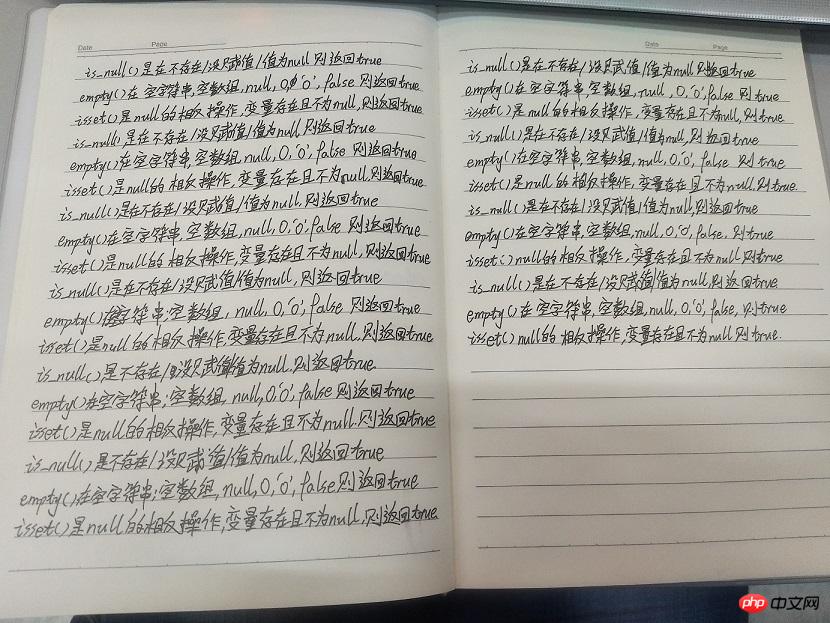 Date Page
is_null()是在不存在/没贝武值/值为null则返回true
empty()在空字符串,空数组,null,0,'0',false则返回true
isset()是null的相反操作,变量存在且不为null,则返回true
is_null()是在不存在/没贝武值/值为null则返回true
empty()在空字符串,空数组,null,0,'0',false则返回true
isset()是null的相反操作,变量存在且不为null.则返回true
is_null()是在不存在/没贝武值/值为null,则返回true
empty()在空字符串,空数组,null,0,'0',false则返回true
isset()是null的相反操作,变量存在且不为null,则返回true
is_null()是在不存在/没贝武值/值为null,则返回true
empty()在字符串,空数组,null,0,'0',false则返回true
isset()是null的相反操作,变量存在且不为null,则返回true
is_null()是不存在/没贝武值/值为null,则返回true
empty()在空字符串;空数组,null,0,'0',false则返回true
isset()是null的相反操作,变量存在且不为null.则返回true
is_null()是不存在/没贝武值/值为null,则返回true
empty()在空字符串;空数组,null,0,'0',false则返回true
isset()是null的相反操作,变量存在且不为null.则返回true
Date Page
is_null()是在不存在/没贝武值/值为null则返回true
empty()在空字符串,空数组,null,0,'0',false则true
isset()是null的相反操作,变量存在且不为null,则true
is_null()是在不存在/没贝武值/值为null,则返回true
empty()在空字符串,空数组,null,0,'0',false则true
isset()是null的相反操作,变量存在且不为null.则true
is_null()是在不存在/没贝武值/值为null,则返回true
empty()在空字符串,空数组,null,0,'0',false,则true
isset()null的相反操作,变量存在且不为null则true
is_null()是在不存在/没贝武值/值为null,则返回true
empty()在空字符串,空数组,null,0,'0',false,则true
isset()null的相反操作,变量存在且不为null则true.
php 中文网